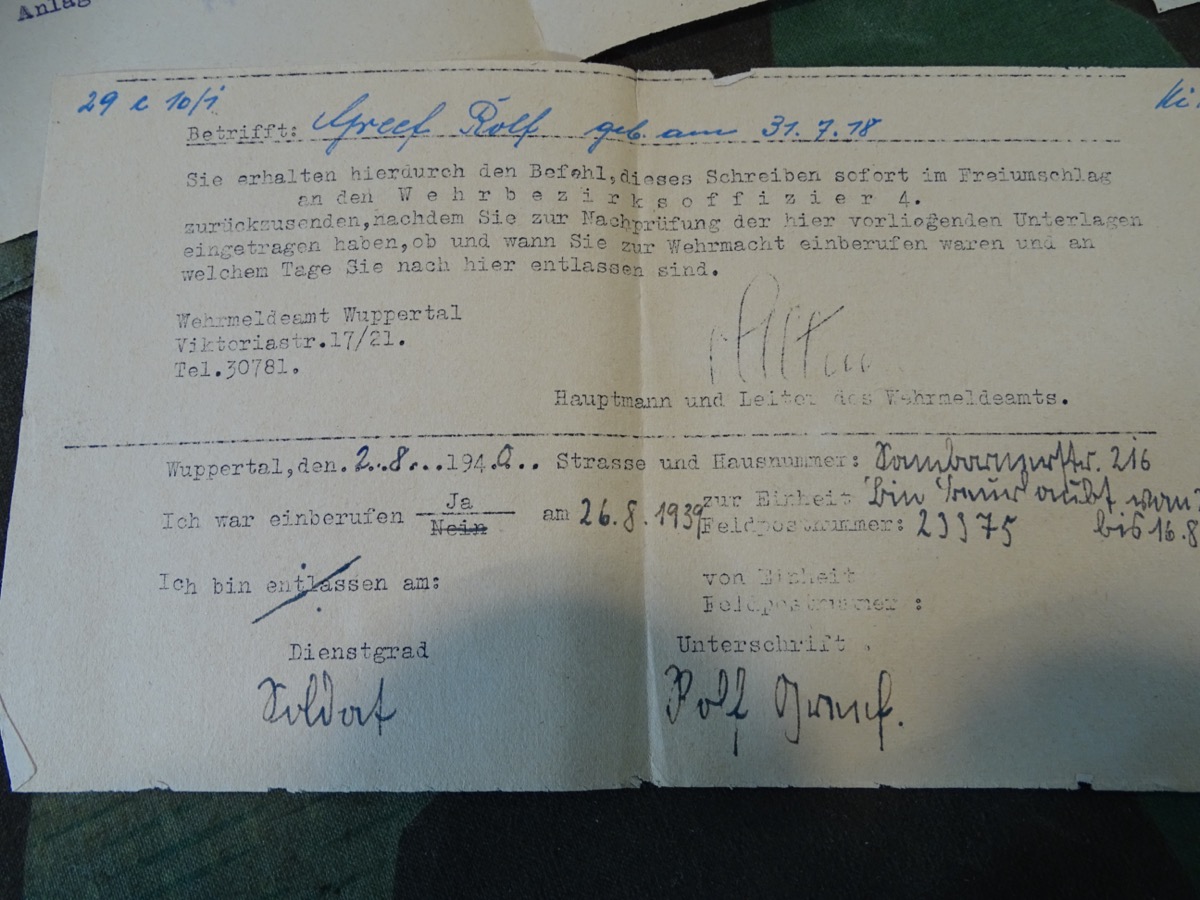 Anlag
29 e 10/1
Betrifft: Greef Rolf geb. am 31.7.18
Sie erhalten hierdurch den Befehl,dieses Schreiben sofort im Freiumschlag
an den Wehrbezirksoffizier 4.
zurückzusenden,nachdem Sie zur Nachprüfung der hier vorliegenden Unterlagen
eingetragen haben,ob und wann Sie zur Wehrmacht einberufen waren und an
welchem Tage Sie nach hier entlassen sind.
Wehrmeldeamt Wuppertal
Viktoriastr.17/21.
Tel.30781.
Hauptmann und Leiter des Wehrmeldeamts.
Wuppertal,den.2..8...1940.. Strasse und Hausnummer: 216
Ich war einberufen Ja am 26.8.1939 zur Einheit Bin beurlaubt
Nein Feldpostnummer: 23375 bis 16.8
Ich bin entlassen am: von Einheit
Feldpostnummer :
Dienstgrad Unterschrift .
Soldat Rolf Greef.